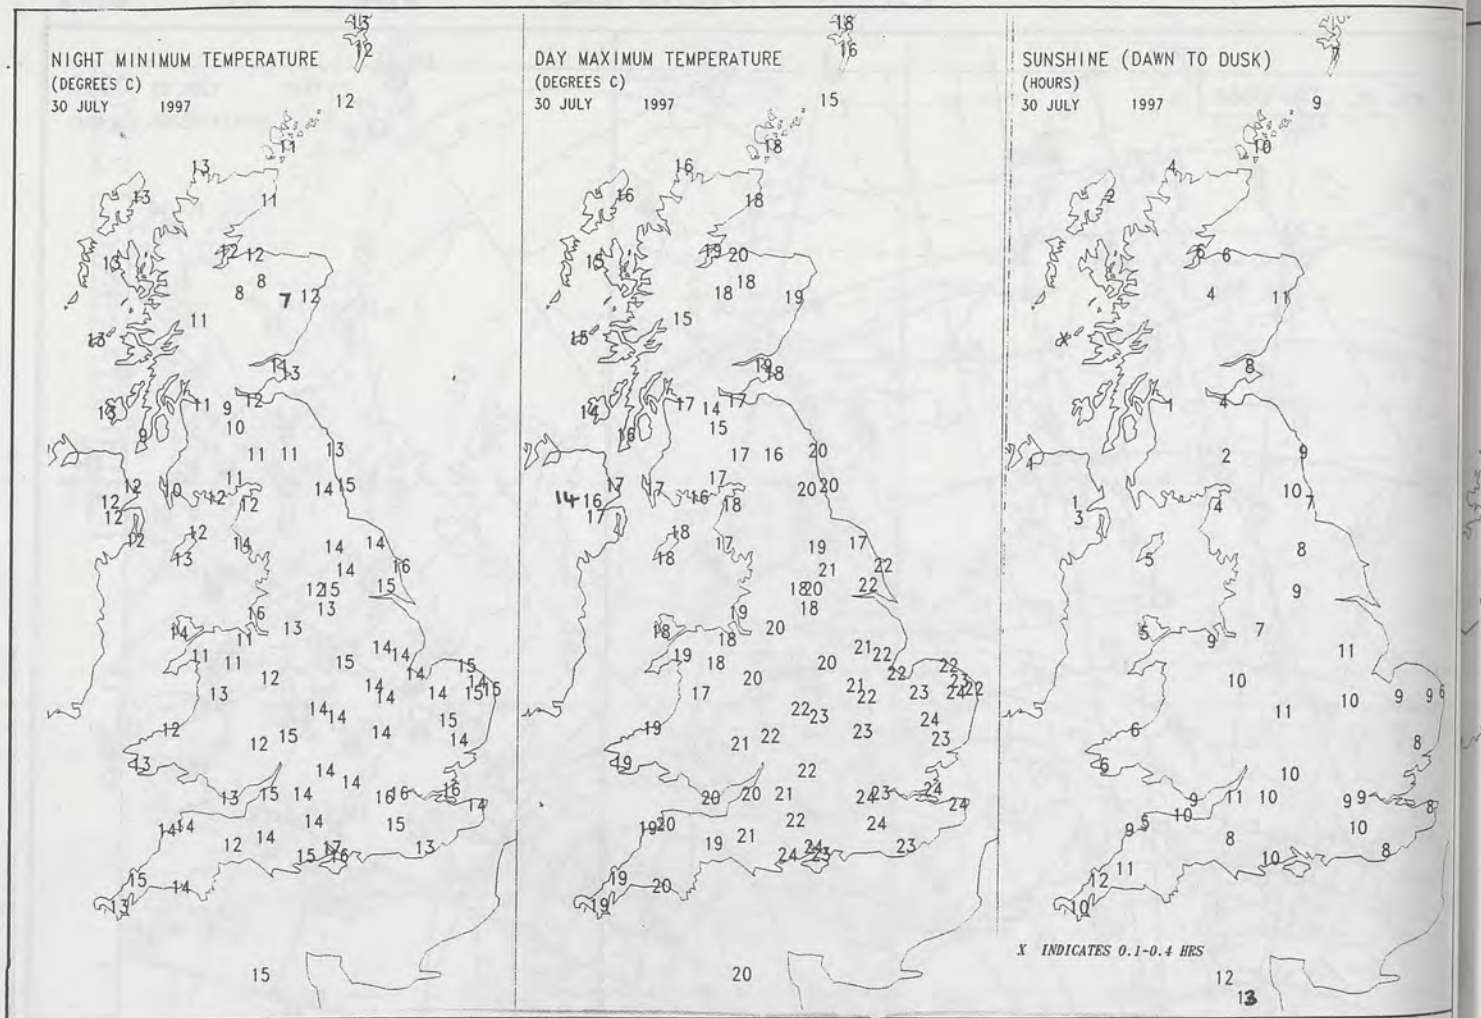 NIGHT MINIMUM TEMPERATURE
(DEGREES C)
30 JULY 1997
13
12
12
11
13
11
13
12 12
13
8
8 7 12
11
13
11
13
12
13 11 9
10
9
11 11 13
11
12 10 12 14 15
12 12
12
12 12 14 14 14
13
14 16
12 15 15
13
16
14 11 13
14 14
11 11 15 15
12 14 14
13 14 14 14 15 15
14 14 15
12 15 14 14
12
13
14 14
13 15 14 16 16 16
14
14 14 14 15
12 14 17 13
15 16
15 14
13
15
DAY MAXIMUM TEMPERATURE
(DEGREES C)
30 JULY 1997
18
16
15
18
16
16 18
15 19 20
18
18 19
15
15
19
18
14 17 14 17
15
16
17 16 20
17
17 17 16 20 20
14 16 18
17
18 17 19 17
18
21 22
18 20 22
18
19
18 18 20
21 21
19 18 20 22 22
17 20 21 22 23 23 23 22
19 22 23 24
21 22 23 23
19
22
20 20 21 24 23 23
24
19 20 22 24
19 21 24 23
24 23
19 20
19
20
SUNSHINE (DAWN TO DUSK)
(HOURS)
30 JULY 1997
7
9
10
4
2
6 6
4 11
X
8
1 4
4 2 9
10 7
1 4
3
5 8
9
5 9 7
11
10 10 9 9 6
11
6 8
6
10
9 11 10 9 9 8
10
9 5 8 10
10 8
11
12
10
X INDICATES 0.1-0.4 HRS
12
13